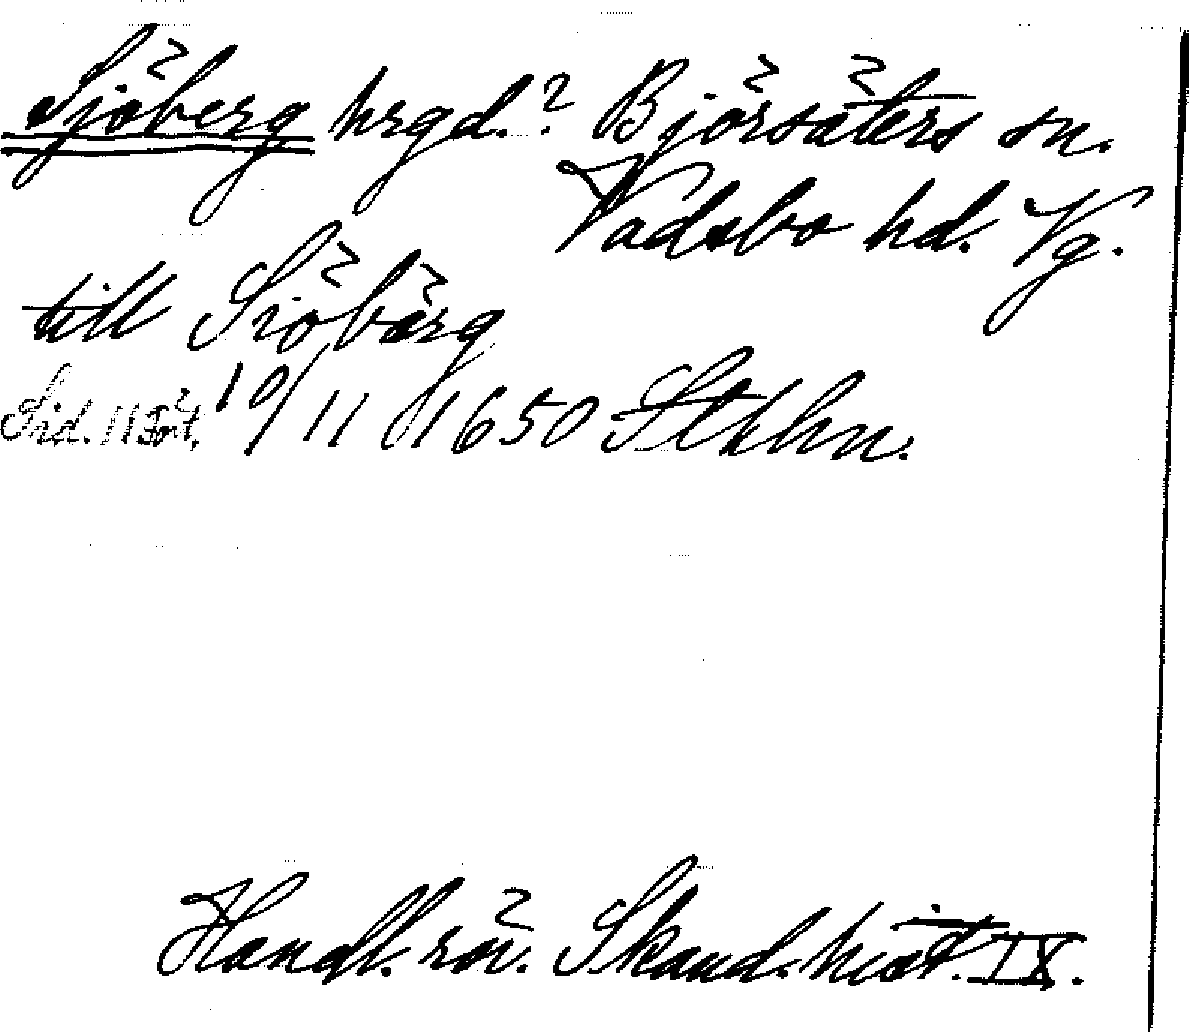 Sjöberg hrgd.? Björsäters sn.
Vadsbo hd. Vg.
till Siöbärg
Sid. 113 öt. 10/11 1650 Sthlm.
Handl. rör. Skand. hist. IX.